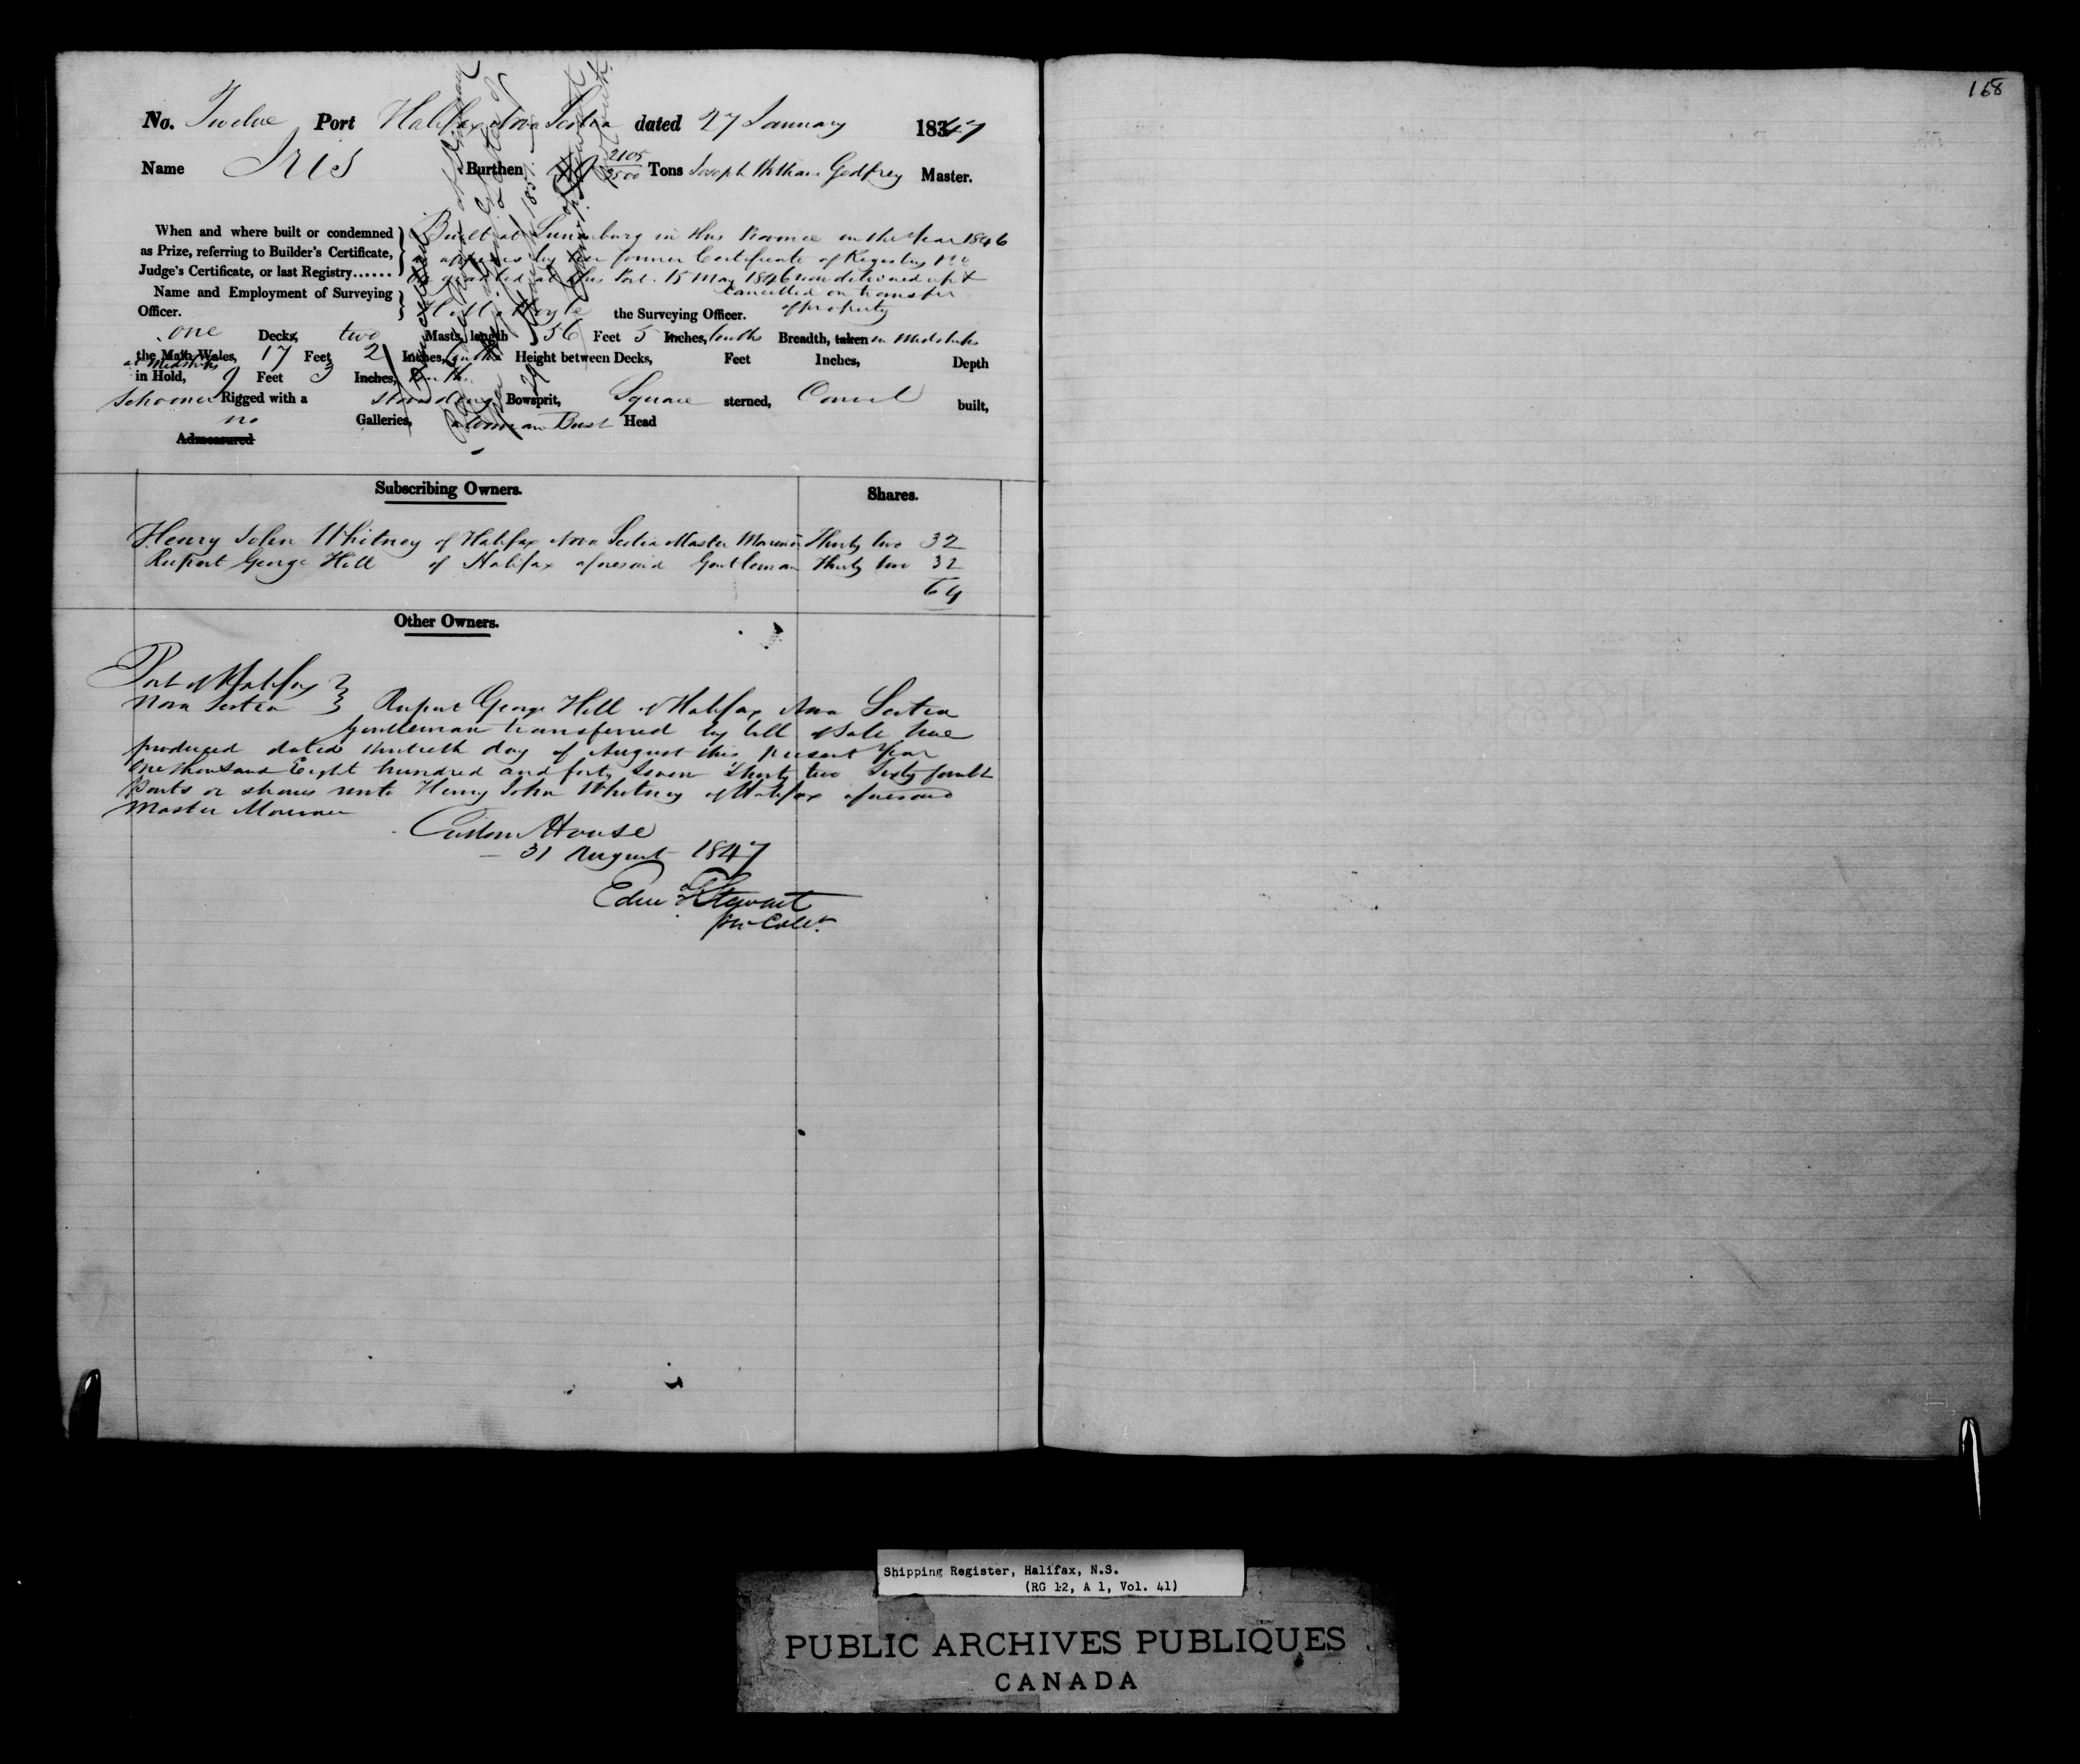 168
No. Twelve Port Halifax Nova Scotia dated 27 January 1847
Name Iris Burthen 2105/3500 Tons Joseph William Godfrey Master.
When and where built or condemned
as Prize, referring to Builder's Certificate,
Judge's Certificate, or last Registry......
Built at Lunenburg in this Province in the Year 1846
appears by her former Certificate of Registry No
granted at this Port 15 May 1846 now delivered up &
cancelled on transfer
of property
Name and Employment of Surveying
Officer.
the Surveying Officer.
one Decks, two Masts, length 56 Feet 5 Inches, tenths Breadth, taken in Midships
the Main Wales, 17 Feet 2 Inches, tenths Height between Decks, Feet Inches, Depth
at Midships
in Hold, 9 Feet 3 Inches, tenths
Schooner Rigged with a standing Bowsprit, Square sterned, Carvel built,
no Galleries, Woman Bust Head
Admeasured
Subscribing Owners. Shares.
Henry John Whitney of Halifax Nova Scotia Master Mariner Thirty two 32
Rupert George Hill of Halifax aforesaid Gentleman Thirty two 32
64
Other Owners.
Port of Halifax
Nova Scotia } Rupert George Hill of Halifax Nova Scotia
Gentleman transferred by bill of Sale here
produced dated thirtieth day of August this present Year
One thousand Eight hundred and forty Seven Thirty two Sixty fourth
Parts or shares unto Henry John Whitney of Halifax aforesaid
Master Mariner
Custom House
31 August 1847
Stewart
Shipping Register, Halifax, N.S.
(RG 12, A 1, Vol. 41)
PUBLIC ARCHIVES PUBLIQUES
CANADA